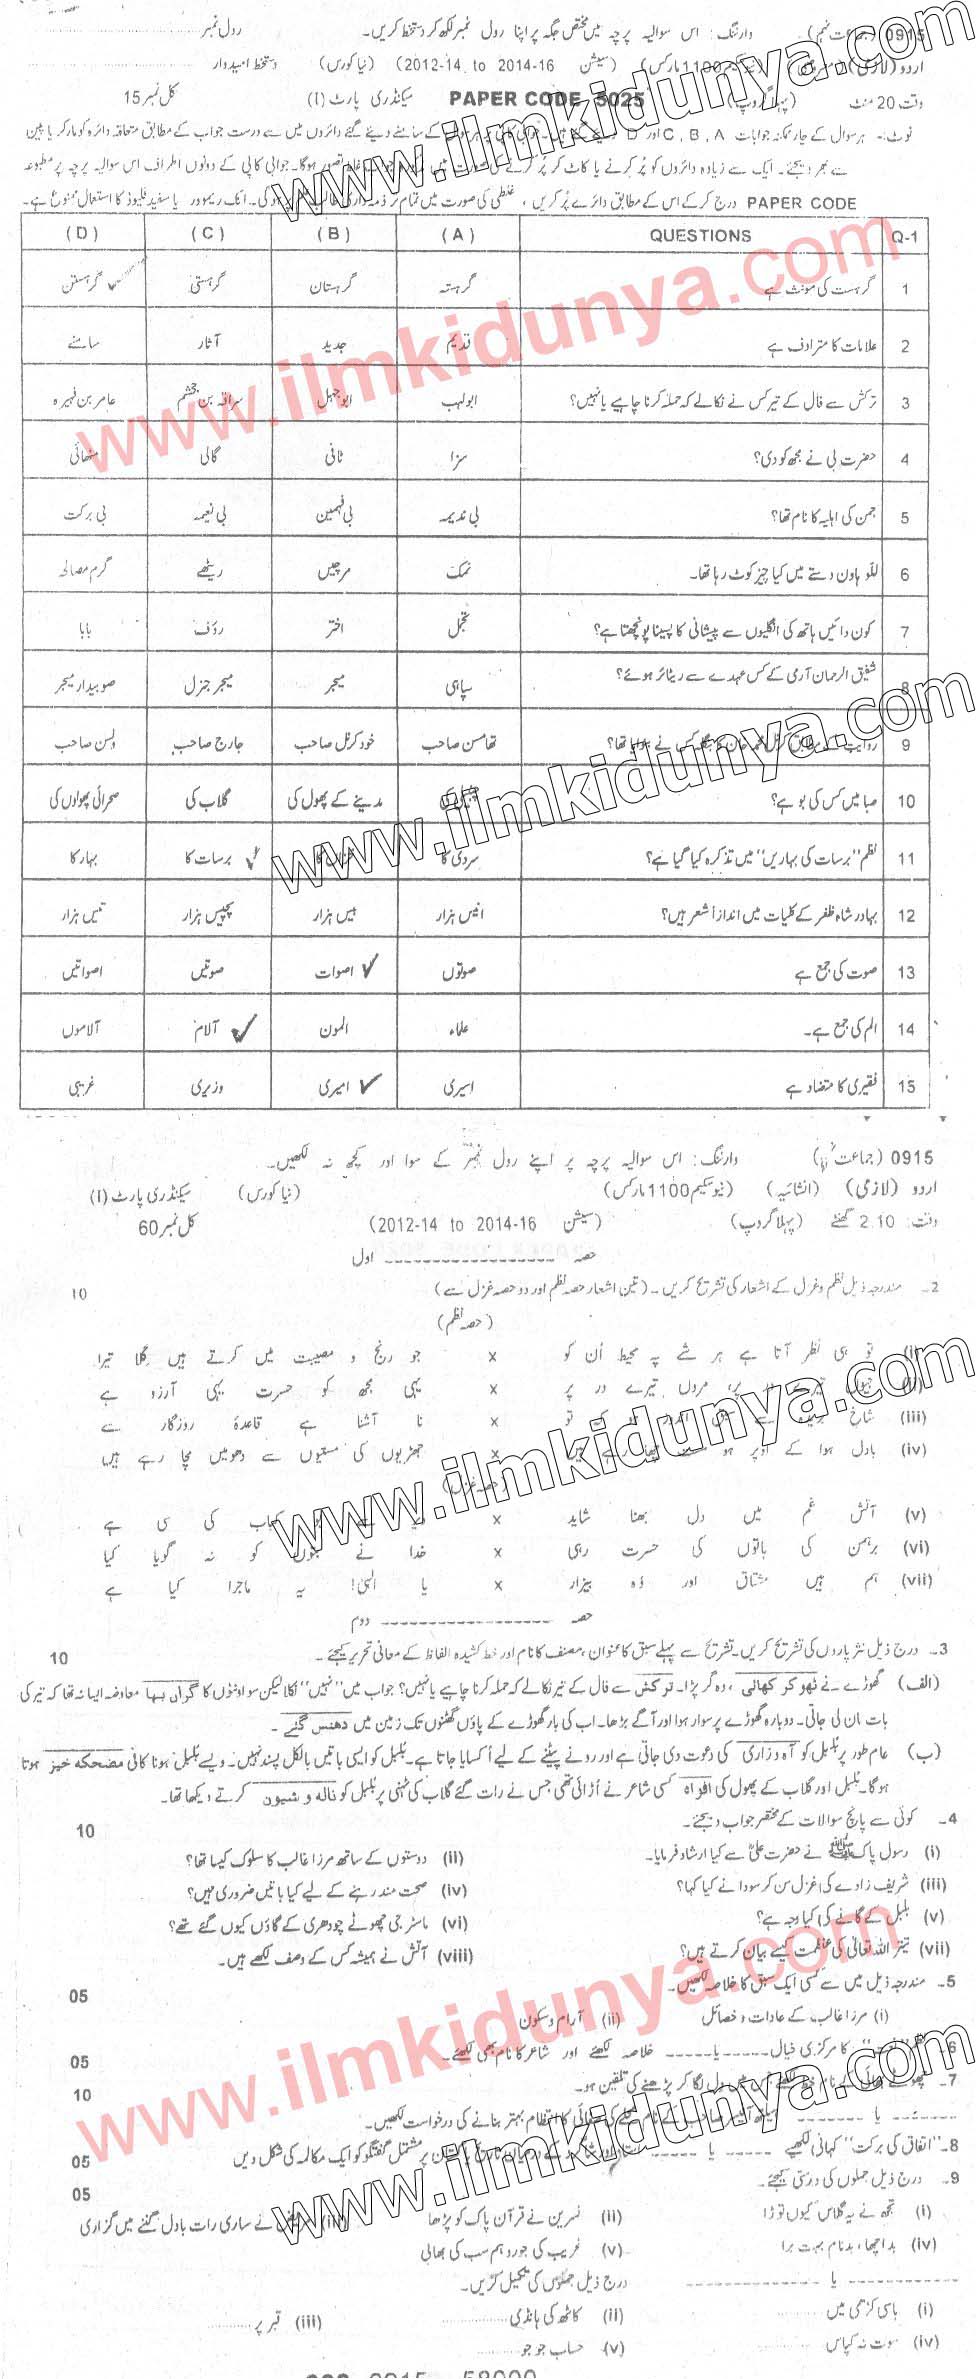 0915 (جماعت نہم) وارننگ: اس سوالیہ پرچہ میں مختص جگہ پر اپنا رول نمبر لکھ کر دستخط کریں۔ رول نمبر
اردو (لازمی) (نیو سکیم 1100 مارکس) (سیشن 2012-14 to 2014-16) (نیا کورس) دستخط امیدوار
وقت 20 منٹ (پہلا گروپ) PAPER CODE 5025 سیکنڈری پارٹ (I) کل نمبر 15
نوٹ:- ہر سوال کے چار ممکنہ جوابات A, B, C اور D دیئے گئے ہیں۔ جوابی کاپی پر ہر سوال کے سامنے دیئے گئے دائروں میں سے درست جواب کے مطابق متعلقہ دائرہ کو مارکر یا پین
سے بھر دیجئے۔ ایک سے زیادہ دائروں کو پُر کرنے یا کاٹ کر پُر کرنے کی صورت میں مذکورہ جواب غلط تصور ہوگا۔ جوابی کاپی کے دونوں اطراف اس سوالیہ پرچہ پر مطبوعہ
PAPER CODE درج کر کے اس کے مطابق دائرے پُر کریں، غلطی کی صورت میں تمام تر ذمہ داری طالب علم پر ہوگی۔ انک ریموور یا سفید فلیوڈ کا استعمال ممنوع ہے۔
Q-1 QUESTIONS (A) (B) (C) (D)
1 گرہست کی مونث ہے گرہستہ گرہستان گرہستی گرہستن
2 علامات کا مترادف ہے قدیم جدید آثار سامنے
3 ترکش سے فال کے تیر کس نے نکالے کہ حملہ کرنا چاہیے یا نہیں؟ ابولہب ابوجہل سراقہ بن جعشم عامر بن فہیرہ
4 حضرت بی نے مجھ کو دی؟ سزا ٹافی گالی مٹھائی
5 جمن کی اہلیہ کا نام تھا؟ بی ندیمہ بی فہیمن بی نعیمہ بی برکت
6 للو ہاون دستے میں کیا چیز کوٹ رہا تھا۔ نمک مرچیں ریٹھے گرم مصالحہ
7 کون دائیں ہاتھ کی انگلیوں سے پیشانی کا پسینا پونچھتا ہے؟ تجمل اختر رؤف بابا
8 شفیق الرحمان آرمی کے کس عہدے سے ریٹائر ہوئے؟ سپاہی میجر میجر جنرل صوبیدار میجر
9 روایت کے مطابق کرنل محمد خان کا بنگلہ کس نے بنوایا تھا؟ تھامسن صاحب خود کرنل صاحب جارج صاحب ولسن صاحب
10 صبا میں کس کی بو ہے؟ مدینے کے پھول کی گلاب کی صحرائی پھولوں کی
11 نظم "برسات کی بہاریں" میں تذکرہ کیا گیا ہے؟ سردی کا برسات کا بہار کا
12 بہادر شاہ ظفر کے کلیات میں اندازاً شعر ہیں؟ انیس ہزار بیس ہزار پچیس ہزار تیس ہزار
13 صوت کی جمع ہے صوتوں اصوات صوتیں اصواتیں
14 الم کی جمع ہے۔ علماء المون آلام آلاموں
15 فقیری کا متضاد ہے اسیری امیری وزیری غریبی
0915 (جماعت نہم) وارننگ: اس سوالیہ پرچہ پر اپنے رول نمبر کے سوا اور کچھ نہ لکھیں۔
اردو (لازمی) (انشائیہ) (نیو سکیم 1100 مارکس) (نیا کورس) سیکنڈری پارٹ (I)
وقت: 2.10 گھنٹے (پہلا گروپ) (سیشن 2012-14 to 2014-16) کل نمبر 60
حصہ ------------------ اول
2۔ مندرجہ ذیل نظم و غزل کے اشعار کی تشریح کریں۔ (تین اشعار حصہ نظم اور دو حصہ غزل سے) 10
(حصہ نظم)
(i) تو ہی نظر آتا ہے ہر شے پہ محیط اُن کو x جو رنج و مصیبت میں کرتے ہیں گلا تیرا
(ii) جیوں تیرے در پر، مروں تیرے در پر x یہی مجھ کو حسرت یہی آرزو ہے
(iii) شاخ بریدہ سے سبق اندوز ہو کہ تو x نا آشنا ہے قاعدۂ روزگار سے
(iv) بادل ہوا کے اوپر ہو مست چھا رہے ہیں x جھڑیوں کی مستیوں سے دھومیں مچا رہے ہیں
(حصہ غزل)
(v) آتش غم میں دل بھنا شاید x دیر سے بو کباب کی سی ہے
(vi) برہمن کی باتوں کی حسرت رہی x خدا نے بتوں کو نہ گویا کیا
(vii) ہم ہیں مشتاق اور وہ بیزار x یا الٰہی! یہ ماجرا کیا ہے
حصہ ------------------ دوم
3۔ درج ذیل نثر پاروں کی تشریح کریں۔ تشریح سے پہلے سبق کا عنوان، مصنف کا نام اور خط کشیدہ الفاظ کے معانی تحریر کیجئے۔ 10
(الف) گھوڑے نے ٹھوکر کھائی، وہ گر پڑا۔ ترکش سے فال کے تیر نکالے کہ حملہ کرنا چاہیے یا نہیں؟ جواب میں "نہیں" نکلا لیکن سو اونٹوں کا گراں بہا معاوضہ ایسا نہ تھا کہ تیر کی
بات مان لی جاتی۔ دوبارہ گھوڑے پر سوار ہوا اور آگے بڑھا۔ اب کی بار گھوڑے کے پاؤں گھٹنوں تک زمین میں دھنس گئے۔
(ب) عام طور پر بلبل کو آہ و زاری کی دعوت دی جاتی ہے اور رونے پیٹنے کے لیے اُکسایا جاتا ہے۔ بلبل کو ایسی باتیں بالکل پسند نہیں۔ ویسے بلبل ہونا کافی مضحکہ خیز ہوتا
ہوگا۔ بلبل اور گلاب کے پھول کی افواہ کسی شاعر نے اُڑائی تھی جس نے رات گئے گلاب کی ٹہنی پر بلبل کو نالہ و شیون کرتے دیکھا تھا۔
4۔ کوئی سے پانچ سوالات کے مختصر جواب دیجئے۔ 10
(i) رسول پاک ﷺ نے حضرت علیؓ سے کیا ارشاد فرمایا۔ (ii) دوستوں کے ساتھ مرزا غالب کا سلوک کیسا تھا؟
(iii) شریف زادے کی غزل سن کر سودا نے کیا کہا؟ (iv) صحت مند رہنے کے لیے کیا باتیں ضروری ہیں؟
(v) بلبل کے گانے کی کیا وجہ ہے؟ (vi) ماسٹر جی چھوٹے چودھری کے گاؤں کیوں گئے تھے؟
(vii) تیتر اللہ تعالیٰ کی عظمت کیسے بیان کرتے ہیں؟ (viii) آتش نے ہمیشہ کس کے وصف لکھے ہیں۔
5۔ مندرجہ ذیل میں سے کسی ایک سبق کا خلاصہ لکھیں۔ 05
(i) مرزا غالب کے عادات و خصائل (ii) آرام و سکون
6۔ کا مرکزی خیال -----یا----- خلاصہ لکھئے اور شاعر کا نام بھی لکھئے۔ 05
7۔ چھوٹے بھائی کے نام خط لکھئے جس میں دل لگا کر پڑھنے کی تلقین ہو۔ 10
------ یا ------ ہیلتھ آفیسر صاحب کے نام محلے کی صفائی کا انتظام بہتر بنانے کی درخواست لکھیں۔
8۔ "اتفاق کی برکت" کہانی لکھیے ----- یا ----- استاد اور شاگرد کے درمیان پر مشتمل گفتگو کو ایک مکالمہ کی شکل دیں 05
9۔ درج ذیل جملوں کی درستی کیجئے۔ 05
(i) تجھ نے یہ گلاس کیوں توڑا (ii) نسرین نے قرآن پاک کو پڑھا (iii) مریض نے ساری رات بادل گننے میں گزاری
(iv) بد اچھا، بدنام بہت برا (v) غریب کی جورو ہم سب کی بھابی
------------ یا ------------ درج ذیل جملوں کی تکمیل کریں۔
(i) باسی کڑھی میں ............ (ii) کاٹھ کی ہانڈی ............ (iii) قبر پر ............
(iv) سوت نہ کپاس ............ (v) حساب جو جو ............
0915 58000
www.ilmkidunya.com
www.ilmkidunya.com
www.ilmkidunya.com
www.ilmkidunya.com
www.ilmkidunya.com
www.ilmkidunya.com